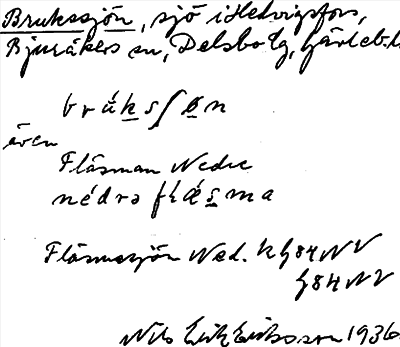 Brukssjön, sjö i Hedvigsfors,
Bjuråkers sn, Delsbo tg, Gävleb. l.
brúksʃøn
även
Flåsman Nedre
nédrə flǽsma
Flåsmasjön Ned. h G84NV
G84NV
Nils Erik Eriksson 1936